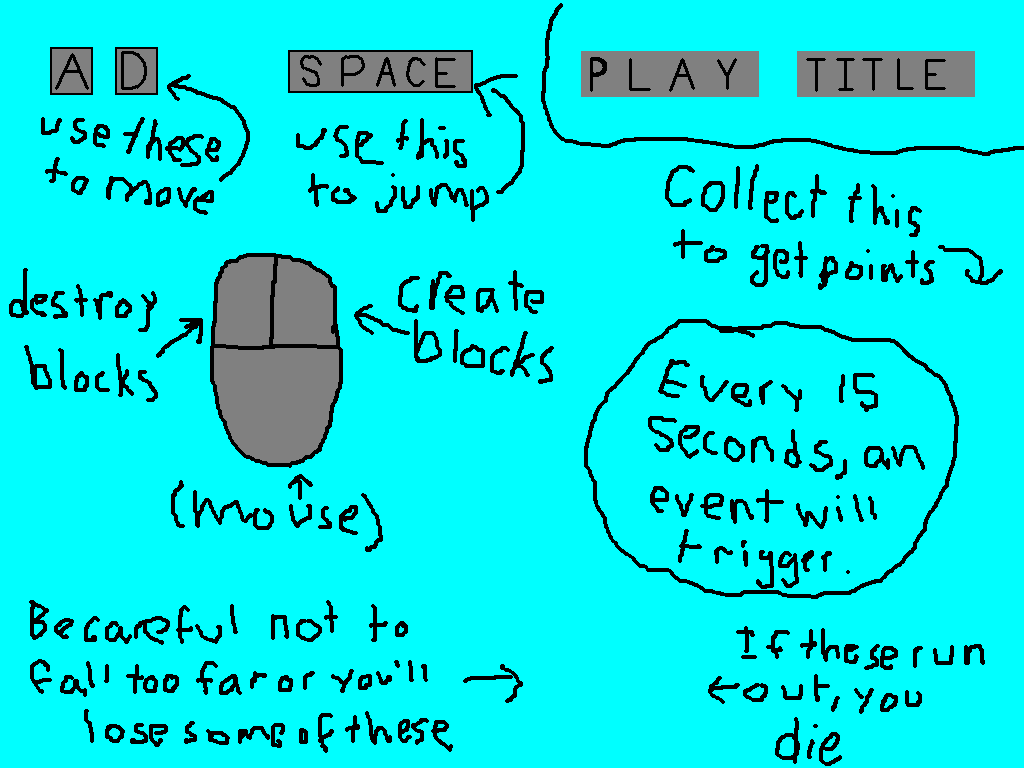 A D
SPACE
PLAY
TITLE
use these
to move
use this
to jump
Collect this
to get points
destroy
blocks
create
blocks
(mouse)
Every 15
seconds, an
event will
trigger.
Be careful not to
fall too far or you'll
lose some of these
If these run
out, you
die